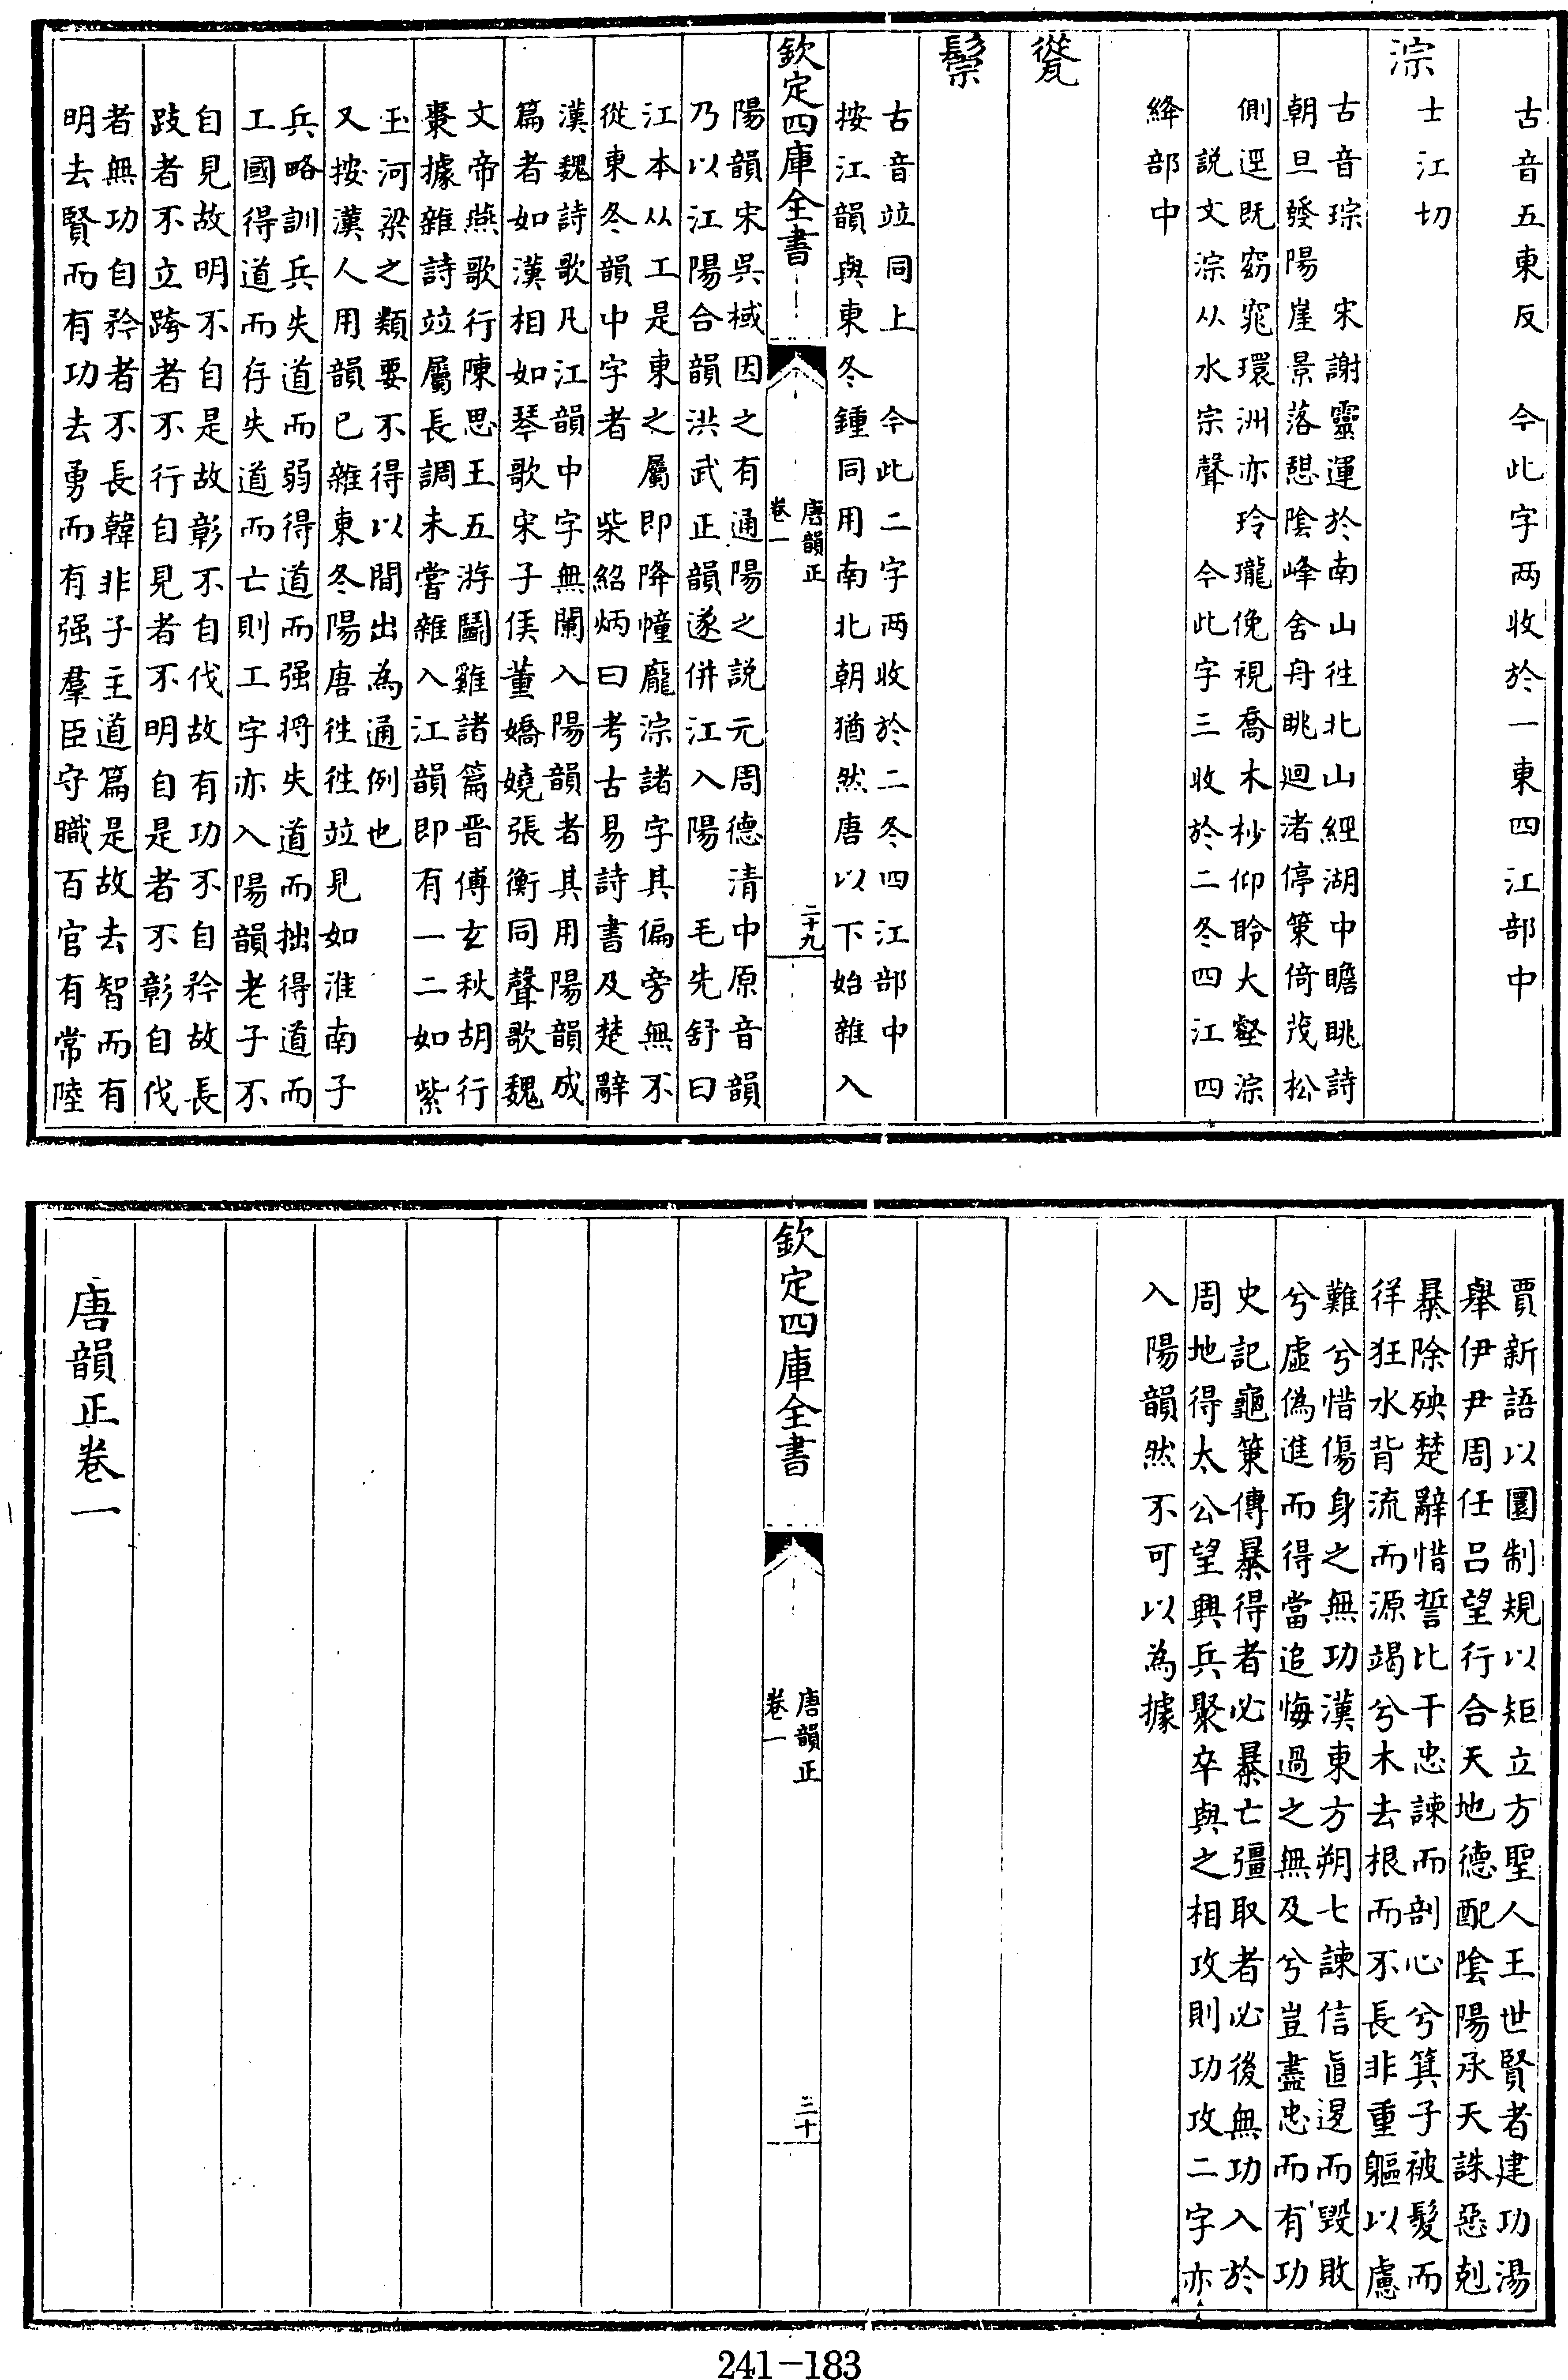 古音五東反　今此字两收於一東四江部中
淙士江切
古音琮　宋謝靈運於南山徃北山經湖中瞻眺詩
朝旦發陽崖景落憇陰峰舍舟眺迴渚停策倚茂松
側逕既窈窕環洲亦玲瓏俛視喬木杪仰聆大壑淙
説文淙从水宗聲　今此字三收於二冬四江四
絳部中
瓷
鬃
古音竝同上　今此二字两收於二冬四江部中
按江韻與東冬鍾同用南北朝猶然唐以下始雜入
欽定四庫全書
唐韻正
卷一
二十九
陽韻宋吳棫因之有通陽之説元周德清中原音韻
乃以江陽合韻洪武正韻遂併江入陽　毛先舒曰
江本从工是東之屬即降幢龐淙諸字其偏旁無不
從東冬韻中字者　柴紹炳曰考古易詩書及楚辭
漢魏詩歌凡江韻中字無闌入陽韻者其用陽韻成
篇者如漢相如琴歌宋子侯董嬌嬈張衡同聲歌魏
文帝燕歌行陳思王五游鬭雞諸篇晋傅玄秋胡行
棗據雜詩竝屬長調未嘗雜入江韻即有一二如紫
玉河梁之類要不得以間出為通例也
又按漢人用韻已雜東冬陽唐徃徃竝見如淮南子
兵略訓兵失道而弱得道而强将失道而拙得道而
工國得道而存失道而亡則工字亦入陽韻老子不
自見故明不自是故彰不自伐故有功不自矜故長
跂者不立跨者不行自見者不明自是者不彰自伐
者無功自矜者不長韓非子主道篇是故去智而有
明去賢而有功去勇而有强羣臣守職百官有常陸
賈新語以圜制規以矩立方聖人王世賢者建功湯
舉伊尹周任吕望行合天地德配陰陽承天誅惡剋
暴除殃楚辭惜誓比干忠諫而剖心兮箕子被髮而
佯狂水背流而源竭兮木去根而不長非重軀以慮
難兮惜傷身之無功漢東方朔七諫信直退而毀敗
兮虛偽進而得當追悔過之無及兮豈盡忠而有功
史記龜策傳暴得者必暴亡彊取者必後無功入於
周地得太公望興兵聚卒與之相攻則功攻二字亦
入陽韻然不可以為據
欽定四庫全書
唐韻正
卷一
三十
唐韻正卷一
241-183